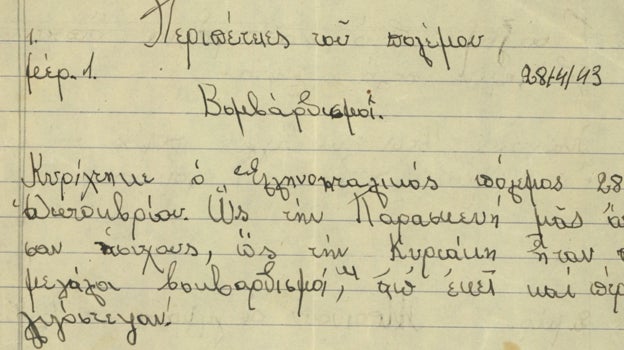 1. Περιπέτειες τοῦ πολέμου
μέρ. 1. 28/4/43
Βομβάρδισμοί.
Κυρίχτηκε ὁ Ἑλληνοηταλικός πόλεμος 28
Ὀκτοκβρίου. Ὣς τήν Παρασκευή μᾶς
σαν ἥσυχους, ὣς τήν Κυριάκη ἦταν
μεγάλοι βοκβαρδισμοί, ἀπό ἐκεῖ καί
λιγόστεψαν.